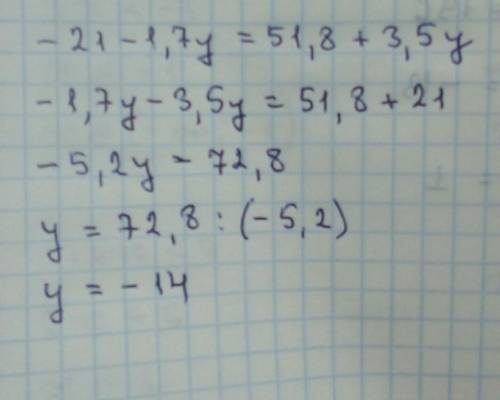 - 21 - 1,7y = 51,8 + 3,5y
- 1,7y - 3,5y = 51,8 + 21
- 5,2y - 72,8
y = 72,8 : (-5,2)
y = - 14